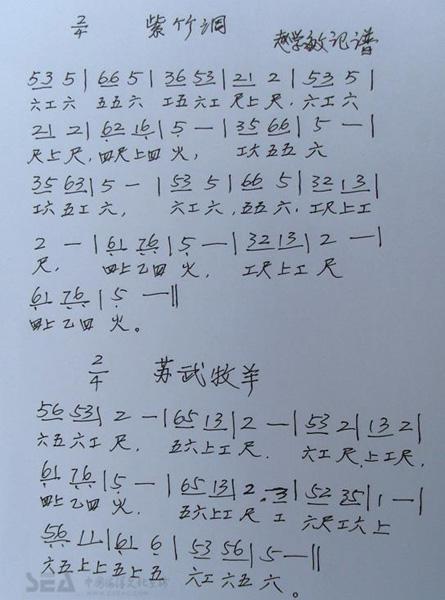 2/4 紫竹调 赵学敏记谱
53 5 | 66 5 | 36 53 | 21 2 | 53 5 |
六工 六 五五 六 工五 六工 尺上 尺. 六工 六
21 2 | 62 16 | 5 — | 35 66 | 5 — |
尺上 尺, 四尺上四 火, 工六五五 六
35 63 | 5 — | 53 5 | 66 5 | 32 13 |
工六五工 六, 六工 六, 五五 六. 工尺上工
2 — | 61 76 | 5 — | 32 13 | 2 — |
尺, 四上乙四 火, 工尺上工 尺
61 76 | 5 — ‖
四上乙四 火。
2/4 苏武牧羊
56 53 | 2 — | 65 13 | 2 — | 53 2 | 13 2 |
六五六工 尺, 五六上工 尺. 六工 尺, 上工 尺,
61 76 | 5 — | 65 13 | 2. 3 | 52 35 | 1 — |
四上乙四 火. 五六上工 尺 工 六尺工六 上
56 11 | 61 6 | 53 56 | 5 — ‖
六五上上五上五 六工六五 六。
SEA